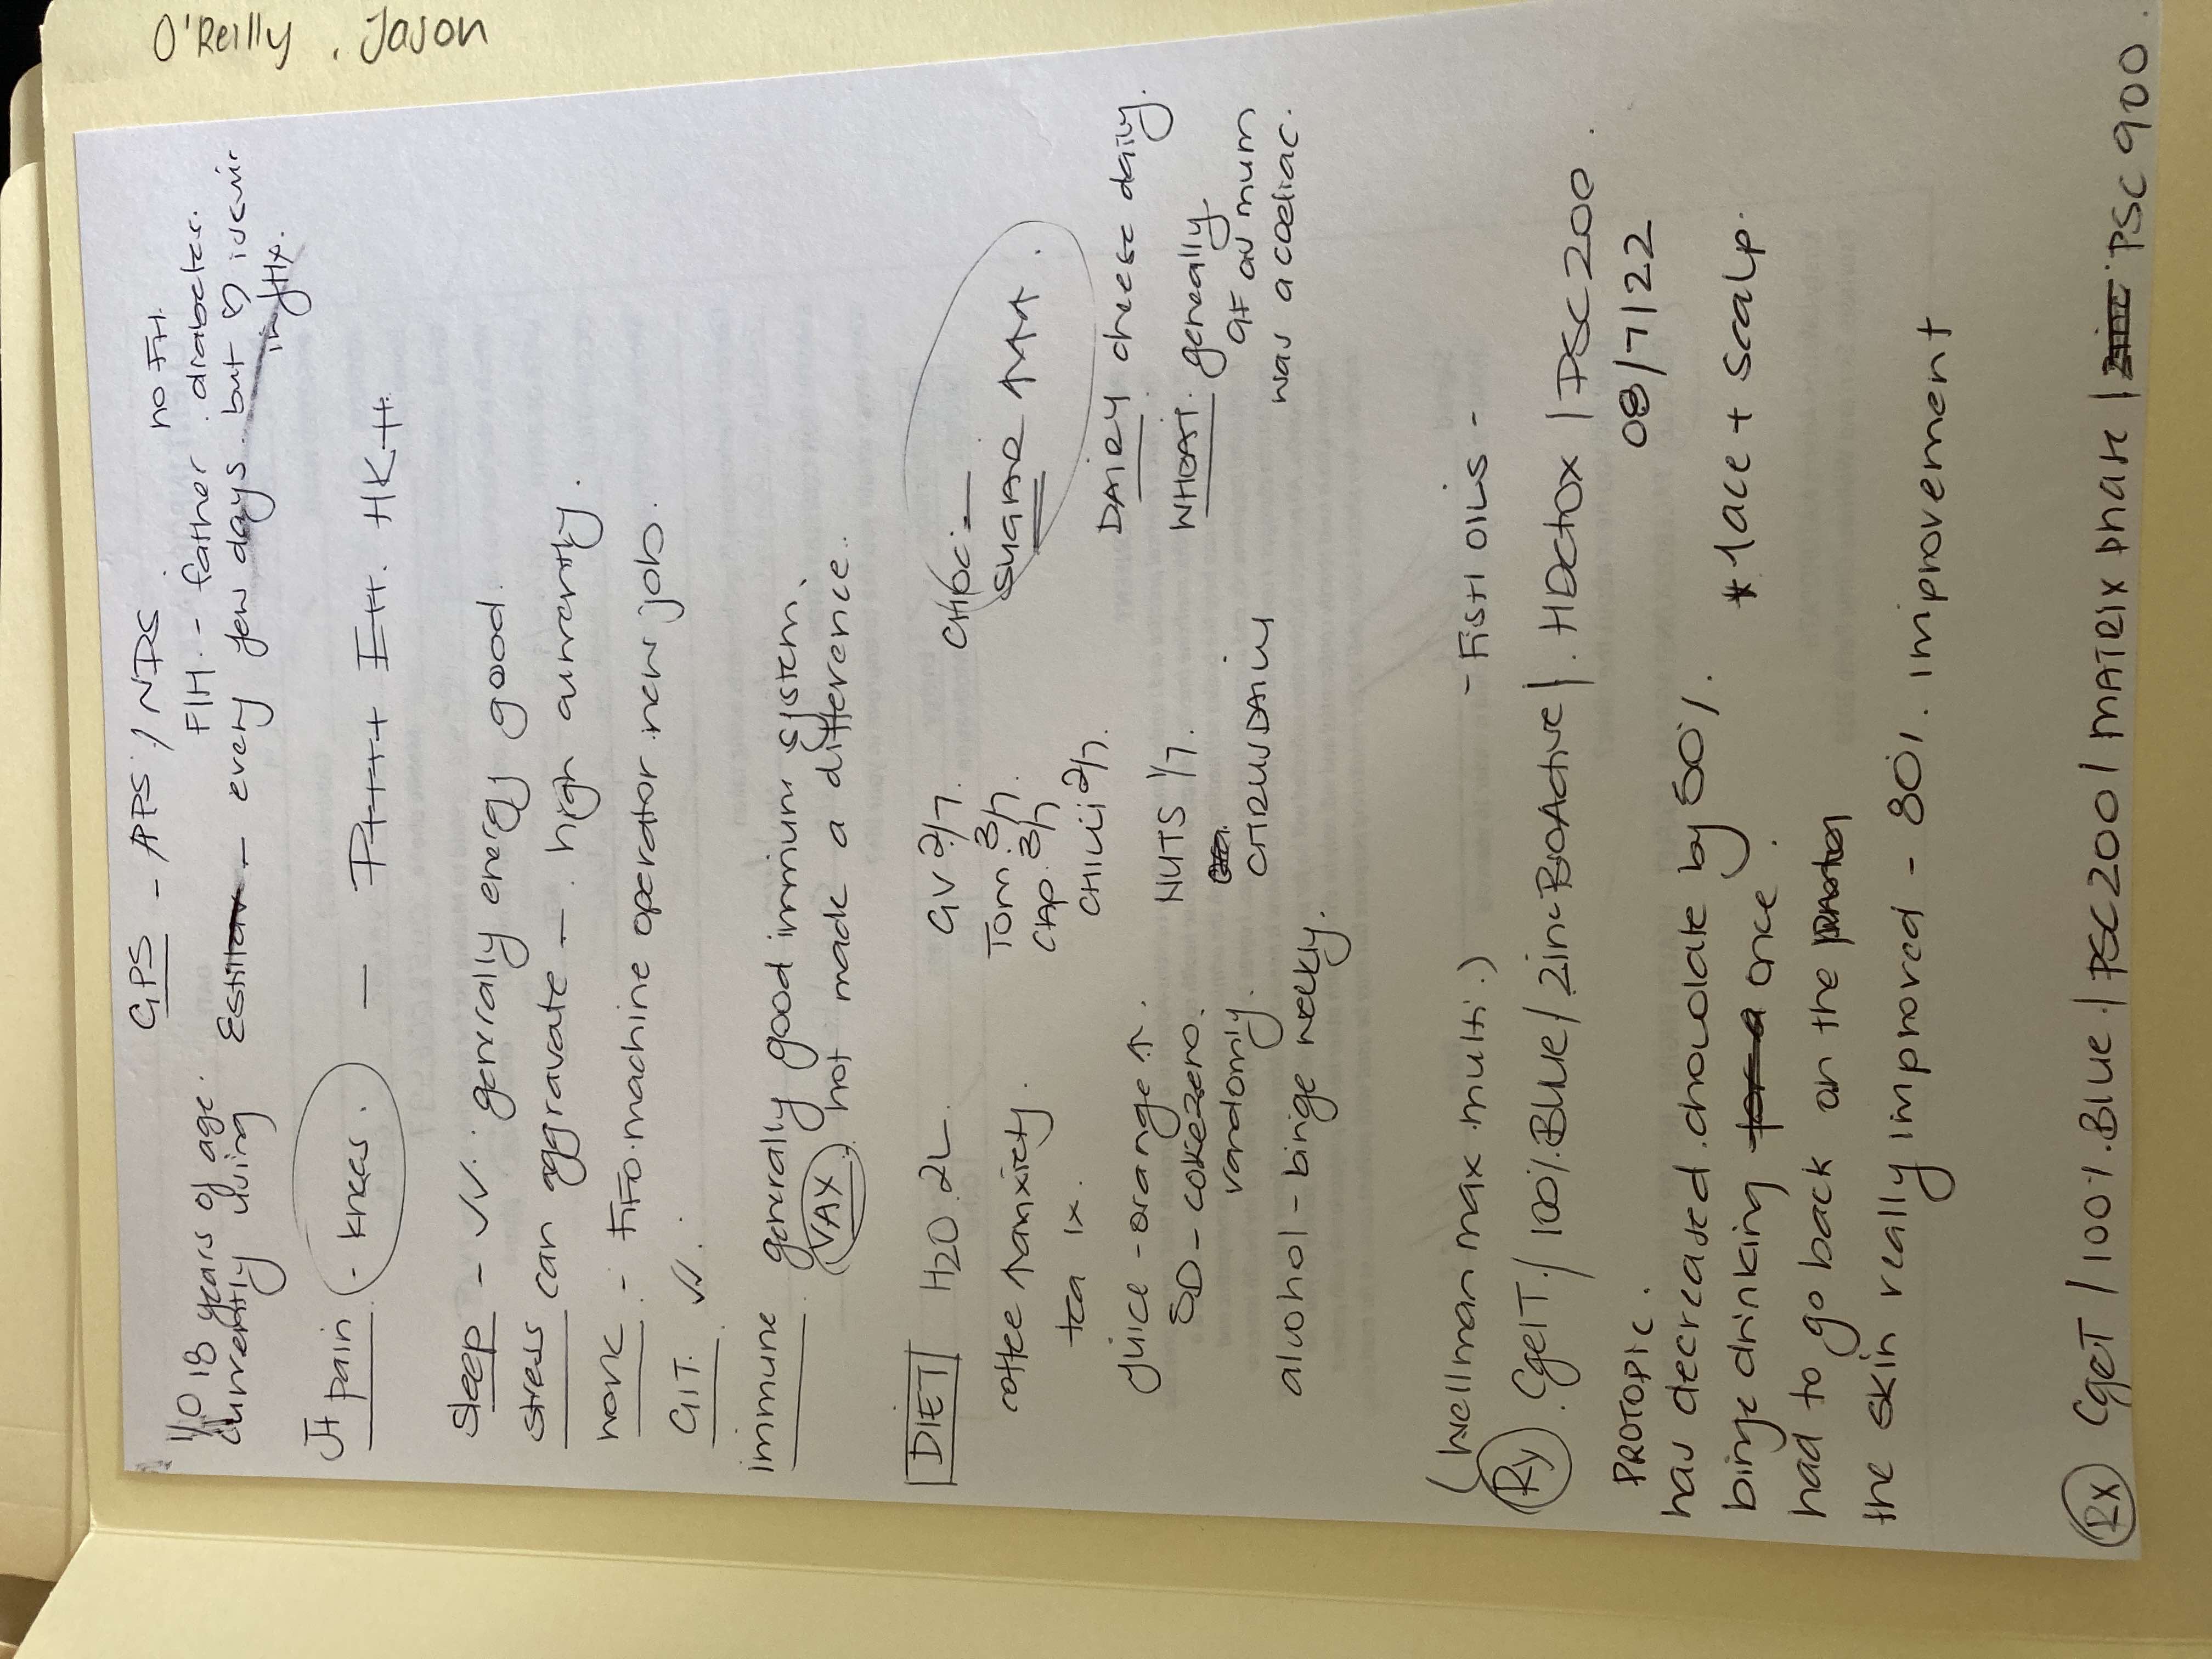 O'Reilly . Jason
GPS - APS / NPS no FH.
Y/O 18 years of age. F/H - father . diabetes.
currently using - every few days . but
in
Jt pain . - knees . - P+++ E+. HK+.
Sleep - √√. generally energy good.
stress can aggravate - high currently.
work - FIFO. machine operator. new job.
GIT. √√.
immune . generally good immium system.
VAX . not made a difference.
DIET H2O. 2L. GV 2/7. CHOC. -
coffee ↑anxiety. Tom. 3/7. SUGAR ↑↑↑ .
tea 1x CAP. 3/7
CHILLI 2/7.
juice - orange ↑. DAIRY cheese daily.
SD - coke zero. NUTS 1/7. WHEAT. generally
randomly. GF as mum
CITRUS DAILY was a coeliac.
alcohol - binge weekly.
(wellman max. multi.) - FISH OILS -
Ry . CgelT. / 100%. Blue / Zinc BioActive | . HDetox | PSC 200
PROTOPIC. 08/7/22
has decreased . chocolate by 50%. * face + scalp.
binge drinking once.
had to go back on the
the skin really improved - 80%. improvement
Rx CgeT / 100%. Blue. / PSC 200 / MATRIX PHAR | PSC 900.